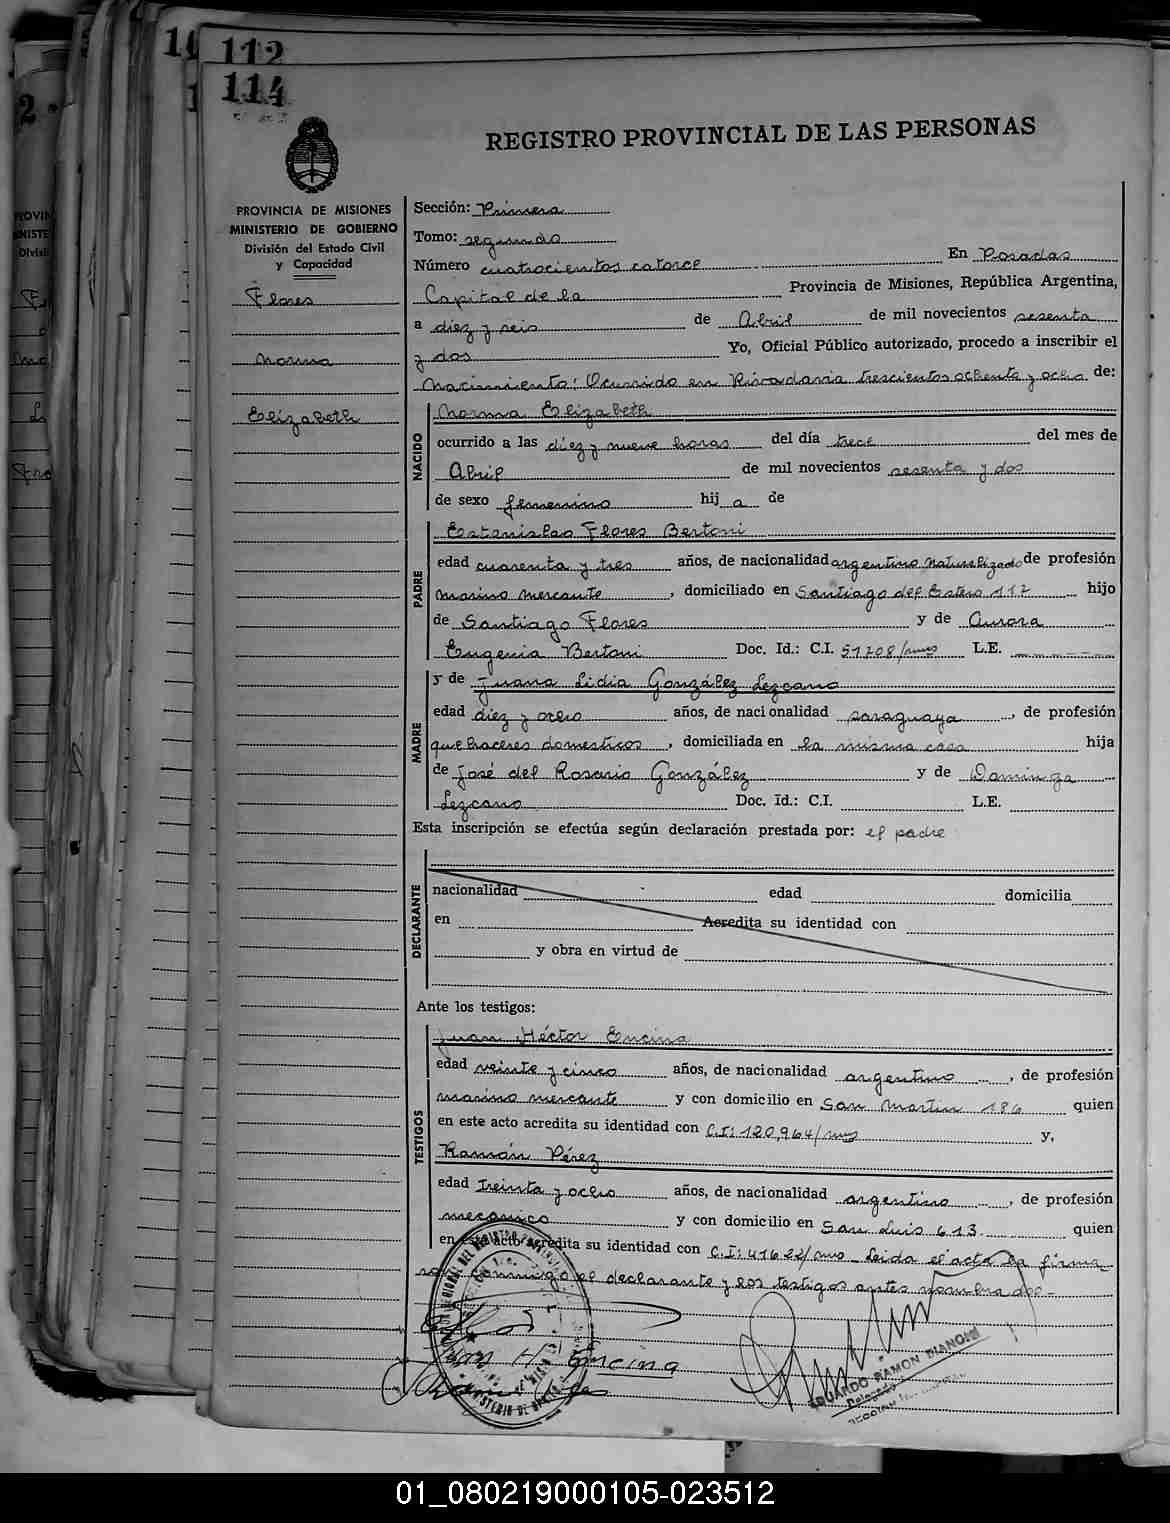 112
114
REGISTRO PROVINCIAL DE LAS PERSONAS
PROVINCIA DE MISIONES
MINISTERIO DE GOBIERNO
División del Estado Civil
y Capacidad
Flores
Norma
Elizabeth
Sección: Primera
Tomo: segundo
Número cuatrocientos catorce En Posadas
Capital de la Provincia de Misiones, República Argentina,
a diez y seis de Abril de mil novecientos sesenta
y dos Yo, Oficial Público autorizado, procedo a inscribir el
Nacimiento: Ocurrido en Rivadavia trescientos ochenta y ocho de:
NACIDO
Norma Elizabeth
ocurrido a las diez y nueve horas del día trece del mes de
Abril de mil novecientos sesenta y dos
de sexo femenino hij a de
PADRE
Estanislao Flores Bertoni
edad cuarenta y tres años, de nacionalidad argentino naturalizado de profesión
marino mercante, domiciliado en Santiago del Estero 117 hijo
de Santiago Flores y de Aurora
Eugenia Bertoni Doc. Id.: C.I. 51708/mns L.E.
MADRE
y de Juana Lidia González Lezcano
edad diez y ocho años, de nacionalidad paraguaya, de profesión
quehaceres domesticos, domiciliada en la misma casa hija
de José del Rosario González y de Dominga
Lezcano Doc. Id.: C.I. L.E.
Esta inscripción se efectúa según declaración prestada por: el padre
DECLARANTE
nacionalidad edad domicilia
en Acredita su identidad con
y obra en virtud de
Ante los testigos:
TESTIGOS
Juan Héctor Encina
edad veinte y cinco años, de nacionalidad argentino, de profesión
marino mercante y con domicilio en San Martin 186 quien
en este acto acredita su identidad con C.I: 120,964/mns y,
Ramón Pérez
edad treinta y ocho años, de nacionalidad argentino, de profesión
mecánico y con domicilio en San Luis 613 quien
en este acto acredita su identidad con C.I: 41622/mns Leida el acta la firma
conmigo el declarante y los testigos antes nombrados-
Juan H. Encina
EDUARDO RAMON BIANCHI
Delegado
01_080219000105-023512